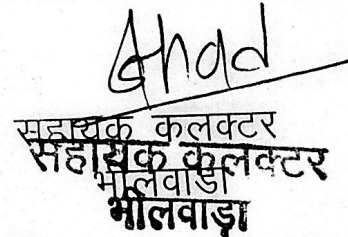 सहायक कलक्टर
सहायक कलक्टर
भीलवाडा
भीलवाड़ा